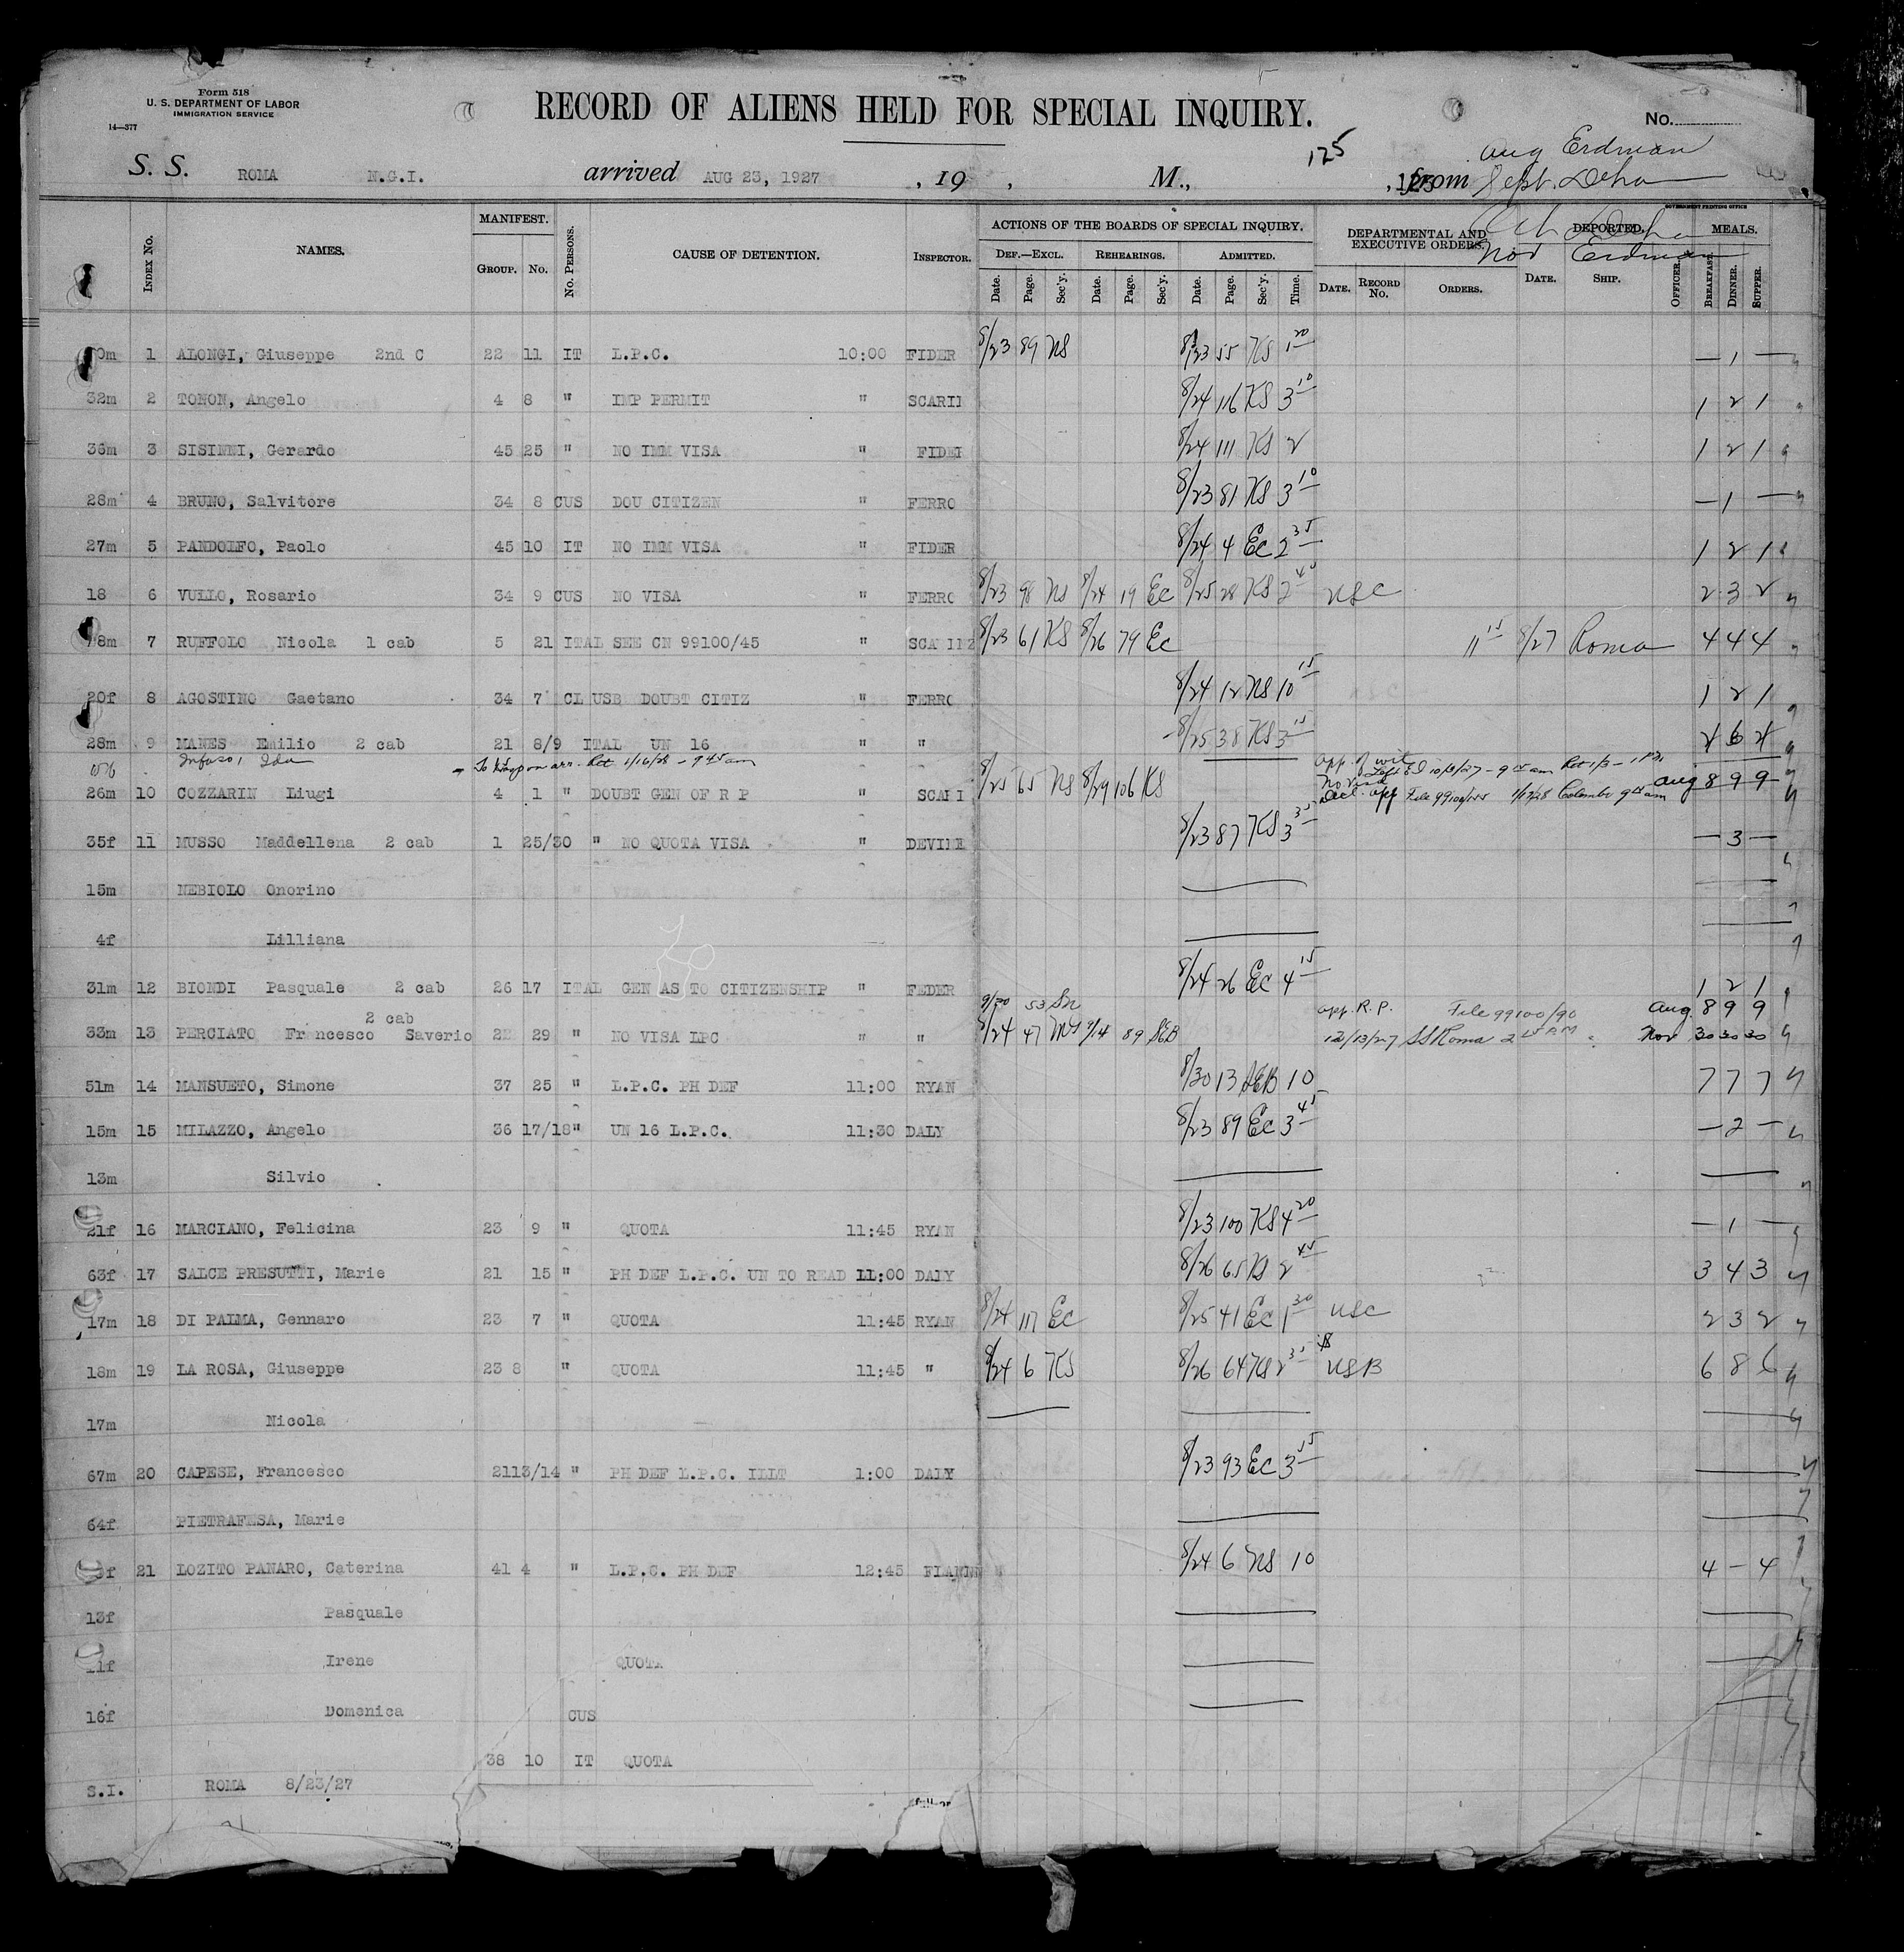 Form 518
U. S. DEPARTMENT OF LABOR
IMMIGRATION SERVICE
14—377
RECORD OF ALIENS HELD FOR SPECIAL INQUIRY.
No.
125
Aug Erdman
S. S. ROMA N.G.I. arrived AUG 23, 1927 , 19 , M., , from Sept. Deha
Nov Erdman
GOVERNMENT PRINTING OFFICE
INDEX NO. NAMES. MANIFEST. GROUP. NO. NO. PERSONS. CAUSE OF DETENTION. INSPECTOR. ACTIONS OF THE BOARDS OF SPECIAL INQUIRY. DEF.—EXCL. Date. Page. Sec'y. REHEARINGS. Date. Page. Sec'y. ADMITTED. Date. Page. Sec'y. Time. DEPARTMENTAL AND EXECUTIVE ORDERS. DATE. RECORD NO. ORDERS. DEPORTED. DATE. SHIP. OFFICER. MEALS. BREAKFAST. DINNER. SUPPER.
1 ALONGI, Giuseppe 2nd C 22 11 IT L.P.C. 10:00 FIDER 8/23 89 NS 8/23 55 KS 1 20 — 1 —
32m 2 TONON, Angelo 4 8 " IMP PERMIT " SCARII 8/24 116 KS 3 10 1 2 1
36m 3 SISINNI, Gerardo 45 25 " NO IMM VISA " FIDEI 8/24 111 KS 2 1 2 1
28m 4 BRUNO, Salvitore 34 8 CUS DOU CITIZEN " FERRO 8/23 81 KS 3 10 — 1 —
27m 5 PANDOLFO, Paolo 45 10 IT NO IMM VISA " FIDER 8/24 4 EC 2 35 1 2 1
18 6 VULLO, Rosario 34 9 CUS NO VISA " FERRO 8/23 98 NS 8/24 19 EC 8/25 28 KS 2 45 USC 2 3 2
8m 7 RUFFOLO Nicola 1 cab 5 21 ITAL SEE CN 99100/45 " 8/23 61 KS 8/26 79 EC 11 15 8/27 Roma 4 4 4
20f 8 AGOSTINO Gaetano 34 7 CL USB DOUBT CITIZ " FERRO 8/24 12 NS 10 15 1 2 1
28m 9 MANES Emilio 2 cab 21 8/9 ITAL UN 16 " " 8/25 38 KS 3 15 4 6 4
Infuso, Ida Ret 1/16/28 - 9 45 am app. of wit Left EI 10/8/27 - 9 15 am Ret 1/3 - 1 PM
26m 10 COZZARIN Liugi 4 1 " DOUBT GEN OF R P " SCARI 8/25 65 NS 8/29 106 KS No Visa Aug 8 9 9
Decl. app File 99100/125 Colombo 9 45 am
35f 11 MUSSO Maddellena 2 cab 1 25/30 " NO QUOTA VISA " DEVINE 8/23 87 KS 3 35 — 3 —
15m NEBIOLO Onorino
4f Lilliana
31m 12 BIONDI Pasquale 2 cab 26 17 ITAL GEN AS TO CITIZENSHIP " FEDER 8/24 26 EC 4 15 1 2 1
2 cab 9/20 53 app. R.P. File 99100/90 Aug. 8 9 9
33m 13 PERCIATO Francesco Saverio 22 29 " NO VISA LPC " " 8/24 47 9/14 89 SEB 12/13/27 SS Roma 2 15 PM Nov 30 30 30
51m 14 MANSUETO, Simone 37 25 " L.P.C. PH DEF 11:00 RYAN 8/30 13 SEB 10 7 7 7
15m 15 MILAZZO, Angelo 36 17/18 " UN 16 L.P.C. 11:30 DALY 8/23 89 EC 3 45 — 2 —
13m Silvio
21f 16 MARCIANO, Felicina 23 9 " QUOTA 11:45 RYAN 8/23 100 KS 4 20 — 1 —
63f 17 SALCE PRESUTTI, Marie 21 15 " PH DEF L.P.C. UN TO READ 11:00 DALY 8/26 65 KS 2 45 3 4 3
17m 18 DI PALMA, Gennaro 23 7 " QUOTA 11:45 RYAN 8/24 117 EC 8/25 41 EC 1 30 USC 2 3 2
18m 19 LA ROSA, Giuseppe 23 8 " QUOTA 11:45 " 8/24 6 KS 8/26 64 KS 2 35 USB 6 8 6
17m Nicola
67m 20 CAPESE, Francesco 21 13/14 " PH DEF L.P.C. ILLT 1:00 DALY 8/23 93 EC 3 15
64f PIETRAFESA, Marie
21 LOZITO PANARO, Caterina 41 4 " L.P.C. PH DEF 12:45 8/24 6 NS 10 4 — 4
13f Pasquale
11f Irene QUOTA
16f Domenica CUS
38 10 IT QUOTA
S.I. ROMA 8/23/27